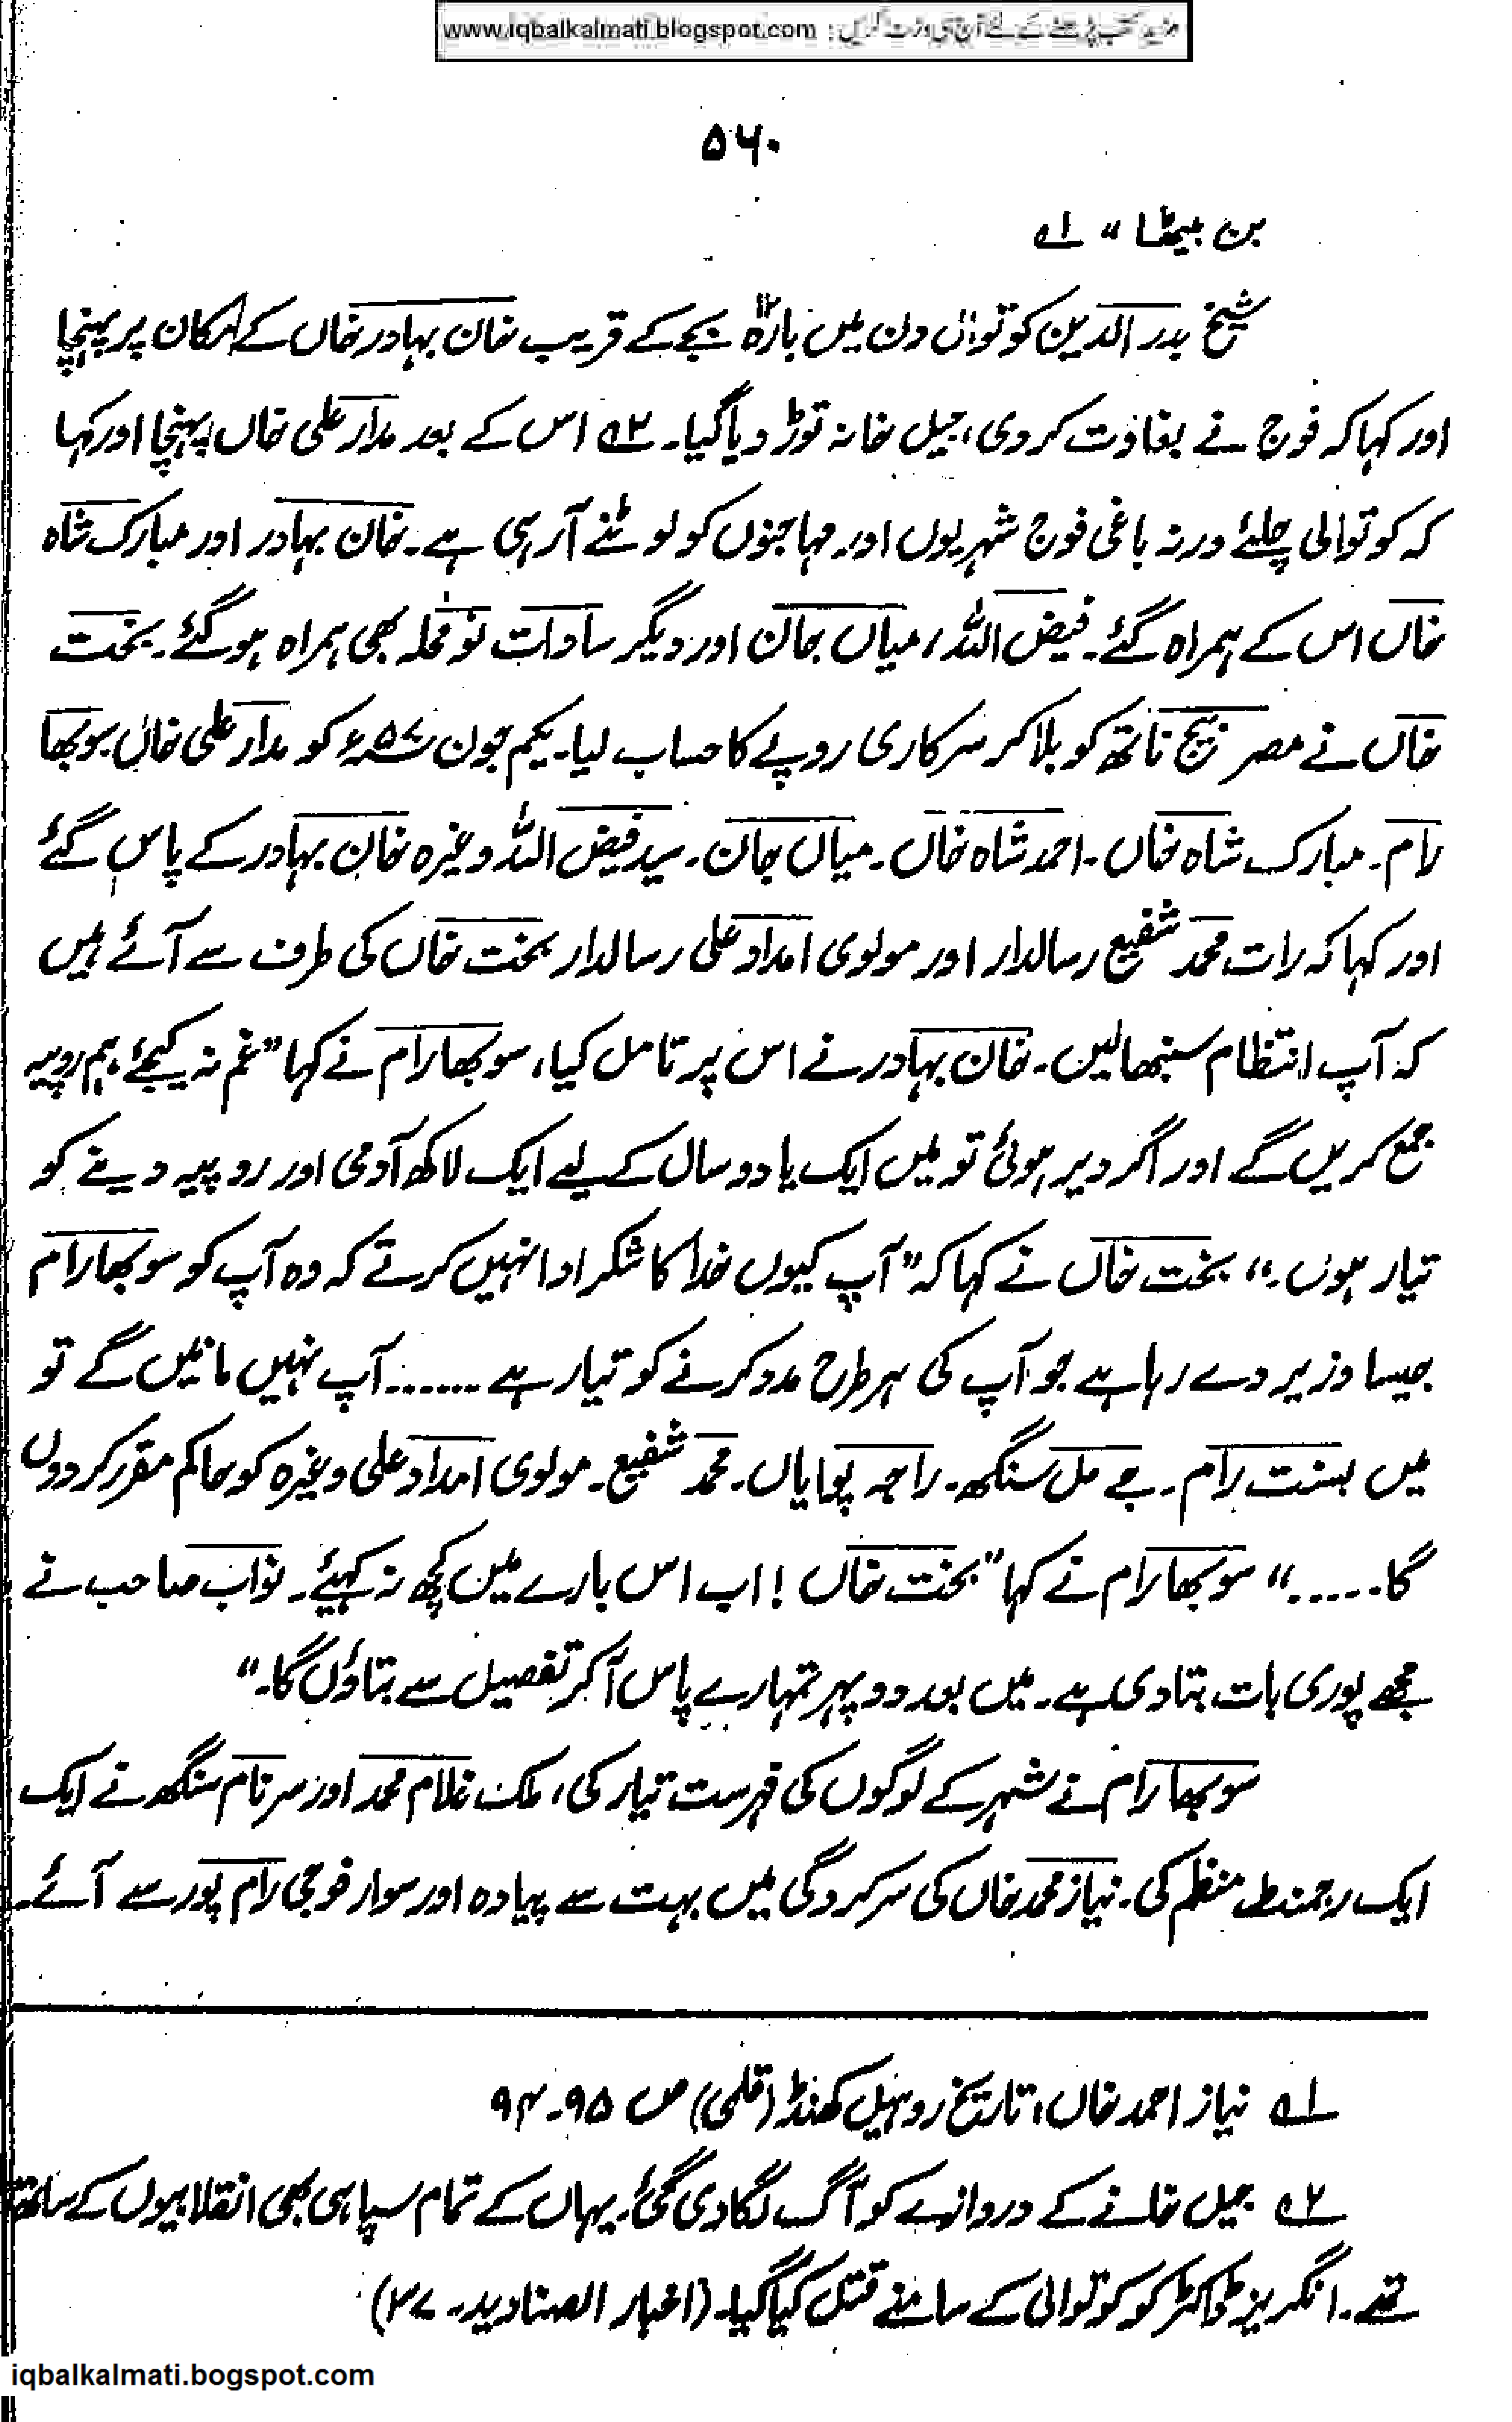 مزید کتب پڑھنے کے لئے آج ہی وزٹ کریں : www.iqbalkalmati.blogspot.com
۵۶۰
بن بیٹھا“ ۱؎
شیخ بدر الدین کوتوال دن میں بارہ ۱۲ بجے کے قریب خان بہادر خاں کے مکان پر پہنچا
اور کہا کہ فوج نے بغاوت کر دی، جیل خانہ توڑ دیا گیا۔ ۲؎ اس کے بعد مدار علی خاں پہنچا اور کہا
کہ کوتوالی چلئے ورنہ باغی فوج شہریوں اور مہاجنوں کو لوٹنے آرہی ہے۔ خان بہادر اور مبارک شاہ
خاں اس کے ہمراہ گئے۔ فیض اللہ، میاں جان اور دیگر سادات نو محلہ بھی ہمراہ ہوگئے۔ بخت
خاں نے مصر بیج ناتھ کو بلا کر سرکاری روپے کا حساب لیا۔ یکم جون ۵۷ء کو مدار علی خاں سوبھا
رام۔ مبارک شاہ خاں۔ احمد شاہ خاں۔ میاں جان۔ سید فیض اللہ وغیرہ خان بہادر کے پاس گئے
اور کہا کہ رات محمد شفیع رسالدار اور مولوی امداد علی رسالدار بخت خاں کی طرف سے آئے ہیں
کہ آپ انتظام سنبھالیں۔ خان بہادر نے اس پر تامل کیا، سوبھا رام نے کہا ”غم نہ کیجئے، ہم روپیہ
جمع کریں گے اور اگر دیر ہوئی تو میں ایک یا دو سال کے لیے ایک لاکھ آدمی اور روپیہ دینے کو
تیار ہوں۔“ بخت خاں نے کہا کہ ”آپ کیوں خدا کا شکر ادا نہیں کرتے کہ وہ آپ کو سوبھا رام
جیسا وزیر دے رہا ہے جو آپ کی ہر طرح مدد کرنے کو تیار ہے ....... آپ نہیں مانیں گے تو
میں بسنت رام۔ جے مل سنگھ۔ راجہ پوایاں۔ محمد شفیع۔ مولوی امداد علی وغیرہ کو حاکم مقرر کردوں
گا.....“ سوبھا رام نے کہا ”بخت خاں! اب اس بارے میں کچھ نہ کہیئے۔ نواب صاحب نے
مجھے پوری بات بتادی ہے۔ میں بعد دوپہر تمہارے پاس آکر تفصیل سے بتاؤں گا۔“
سوبھا رام نے شہر کے لوگوں کی فہرست تیار کی، ملک غلام محمد اور سرنام سنگھ نے ایک
ایک رجمنٹ منظم کی۔ نیاز محمد خاں کی سرکردگی میں بہت سے پیادہ اور سوار فوجی رام پور سے آئے۔
۱؎ نیاز احمد خاں، تاریخ روہیل کھنڈ (قلمی) ص ۹۵۔۹۴
۲؎ جیل خانے کے دروازے کو آگ لگا دی گئی۔ یہاں کے تمام سپاہی بھی انقلابیوں کے ساتھ
تھے۔ انگریز ڈاکٹر کو کوتوالی کے سامنے قتل کیا گیا۔ (اخبار الصنادید۔ ۲۷)
iqbalkalmati.bogspot.com